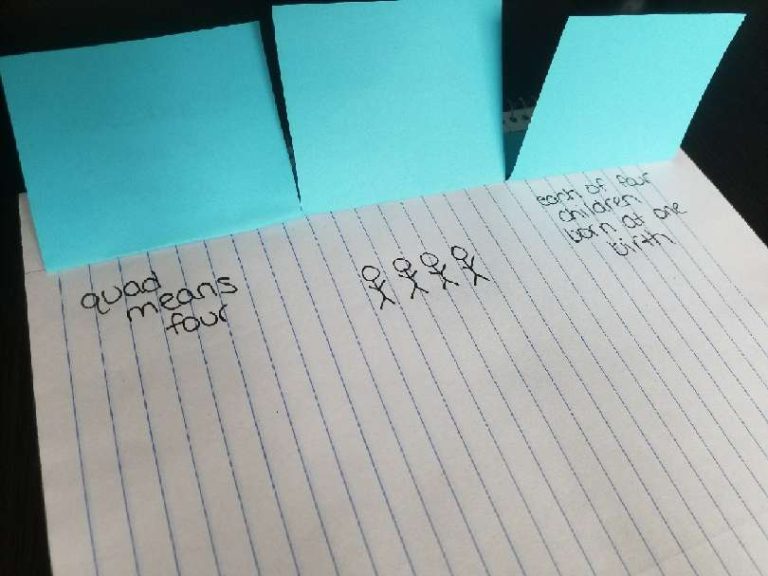 quad
means
four
each of four
children
born at one
birth